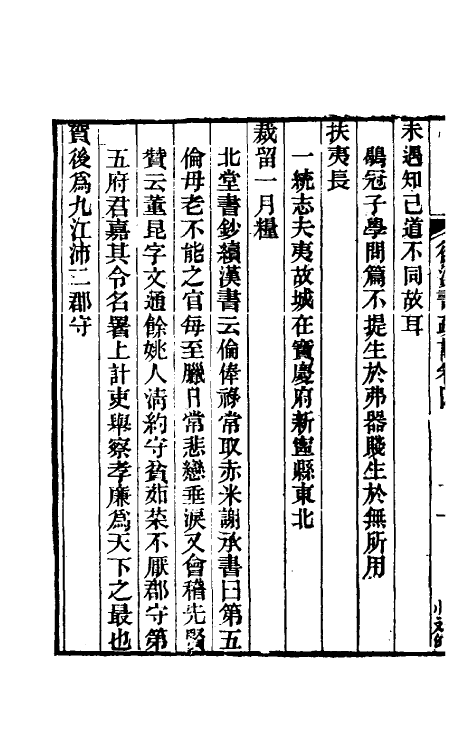 未遇知己道不同故耳
鶡冠子學問篇不提生於弗器賤生於無所用
扶夷長
一統志夫夷故城在寶慶府新甯縣東北
裁留一月糧
北堂書鈔續漢書云倫俸祿常取赤米謝承書曰第五
倫母老不能之官每至臘日常悲戀垂淚又會稽先賢
贊云董昆字文通餘姚人淸約守貧茹菜不厭郡守第
五府君嘉其令名署上計吏舉察孝廉爲天下之最也
賀後爲九江沛二郡守